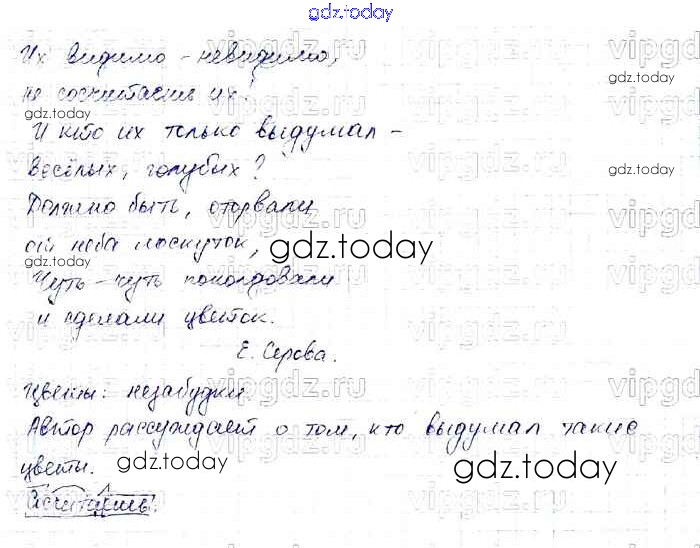 gdz.today
Их видимо-невидимо,
не сосчитаешь их!
И кто их только выдумал –
весёлых, голубых?
Должно быть, оторвали
от неба лоскуток,
Чуть-чуть поколдовали
и сделали цветок.
Е. Серова.
Цветы: незабудки.
Автор рассуждает о том, кто выдумал такие
цветы.
Сосчитаешь.
gdz.today
gdz.today
gdz.today
gdz.today
gdz.today
gdz.today
vipgdz.ru
vipgdz.ru
vipgdz.ru
vipgdz.ru
vipgdz.ru